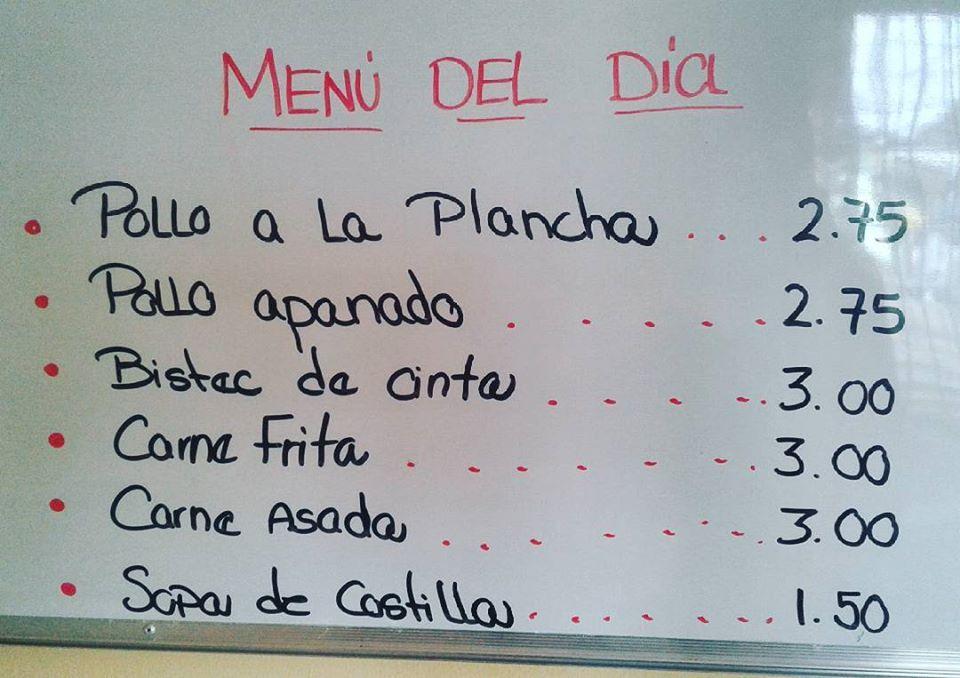 MENÚ DEL DÍA
• Pollo a La Plancha ... 2.75
• Pollo apanado ..... 2.75
• Bistec de cinta ...... 3.00
• Carne Frita ....... 3.00
• Carne Asada ....... 3.00
• Sopa de Costilla ...... 1.50